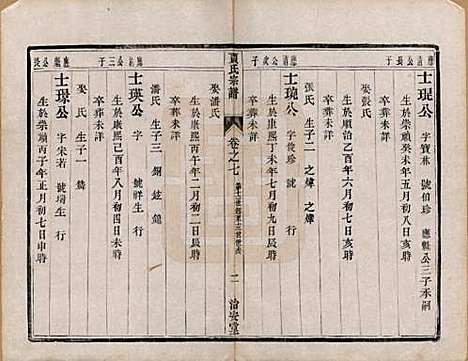 應清公長子
士琨公 字寶林 號伯珍 應驥公三子承嗣
生於崇禎癸未年五月初八日亥時
卒葬未詳
娶張氏
生於順治乙酉年六月初七日亥時
卒葬未詳
張氏 生子二 之煒 之煒
應清公次子
士琬公 字俊珍 行
生於康熙丁未年七月初九日辰時
卒葬未詳
娶潘氏
生於康熙丙午年二月初二日辰時
卒葬未詳
貢氏宗譜
卷之七
二 治安堂
潘氏 生子三 銅 鉉 鎚
應清公三子
士瑛公 號祥生 行
生於康熙己酉年八月初四日未時
卒葬未詳
娶氏 生子一
應驥公長
士璟公 字宋若 號瑞生 行
生於崇禎丙子年正月初七日申時